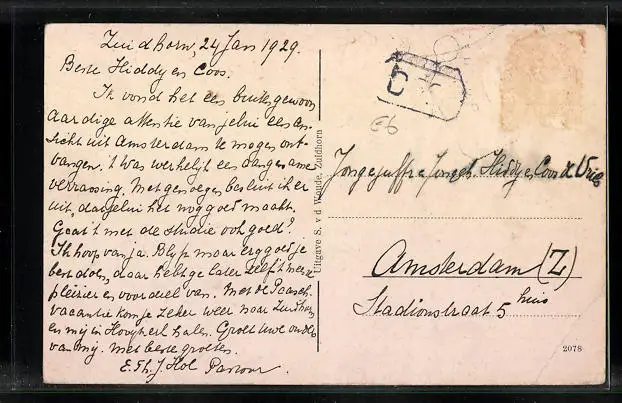 Zuidhorn, 24 Jan 1929.
Beste Hiddy en Coos.
Ik vond het een buitengewoon
aardige attentie van jelui een An-
sicht uit Amsterdam te mogen ont-
vangen. 't was werkelijk een aangename
verrassing. Met genoegen besluit ik er
uit, dat jelui het nog goed maakt.
Gaat 't met de studie ook goed?
Ik hoop van ja. Blijf maar erg goed je
best doen, daar heb je later zelf 't meeste
pleizier en voordeel van. Met de Paasch-
vacantie kom je zeker weer naar Zuidhorn
en mij in Hooykerk halen. Groet uwe ouders
van mij. Met beste groeten.
E. Th. J. Hol
Uitgave S. v d Woude, Zuidhorn
E6
Jongejuffr en Jongeh. Hiddy en Coos de Vries
Amsterdam (Z)
Stadionstraat 5 huis
2078